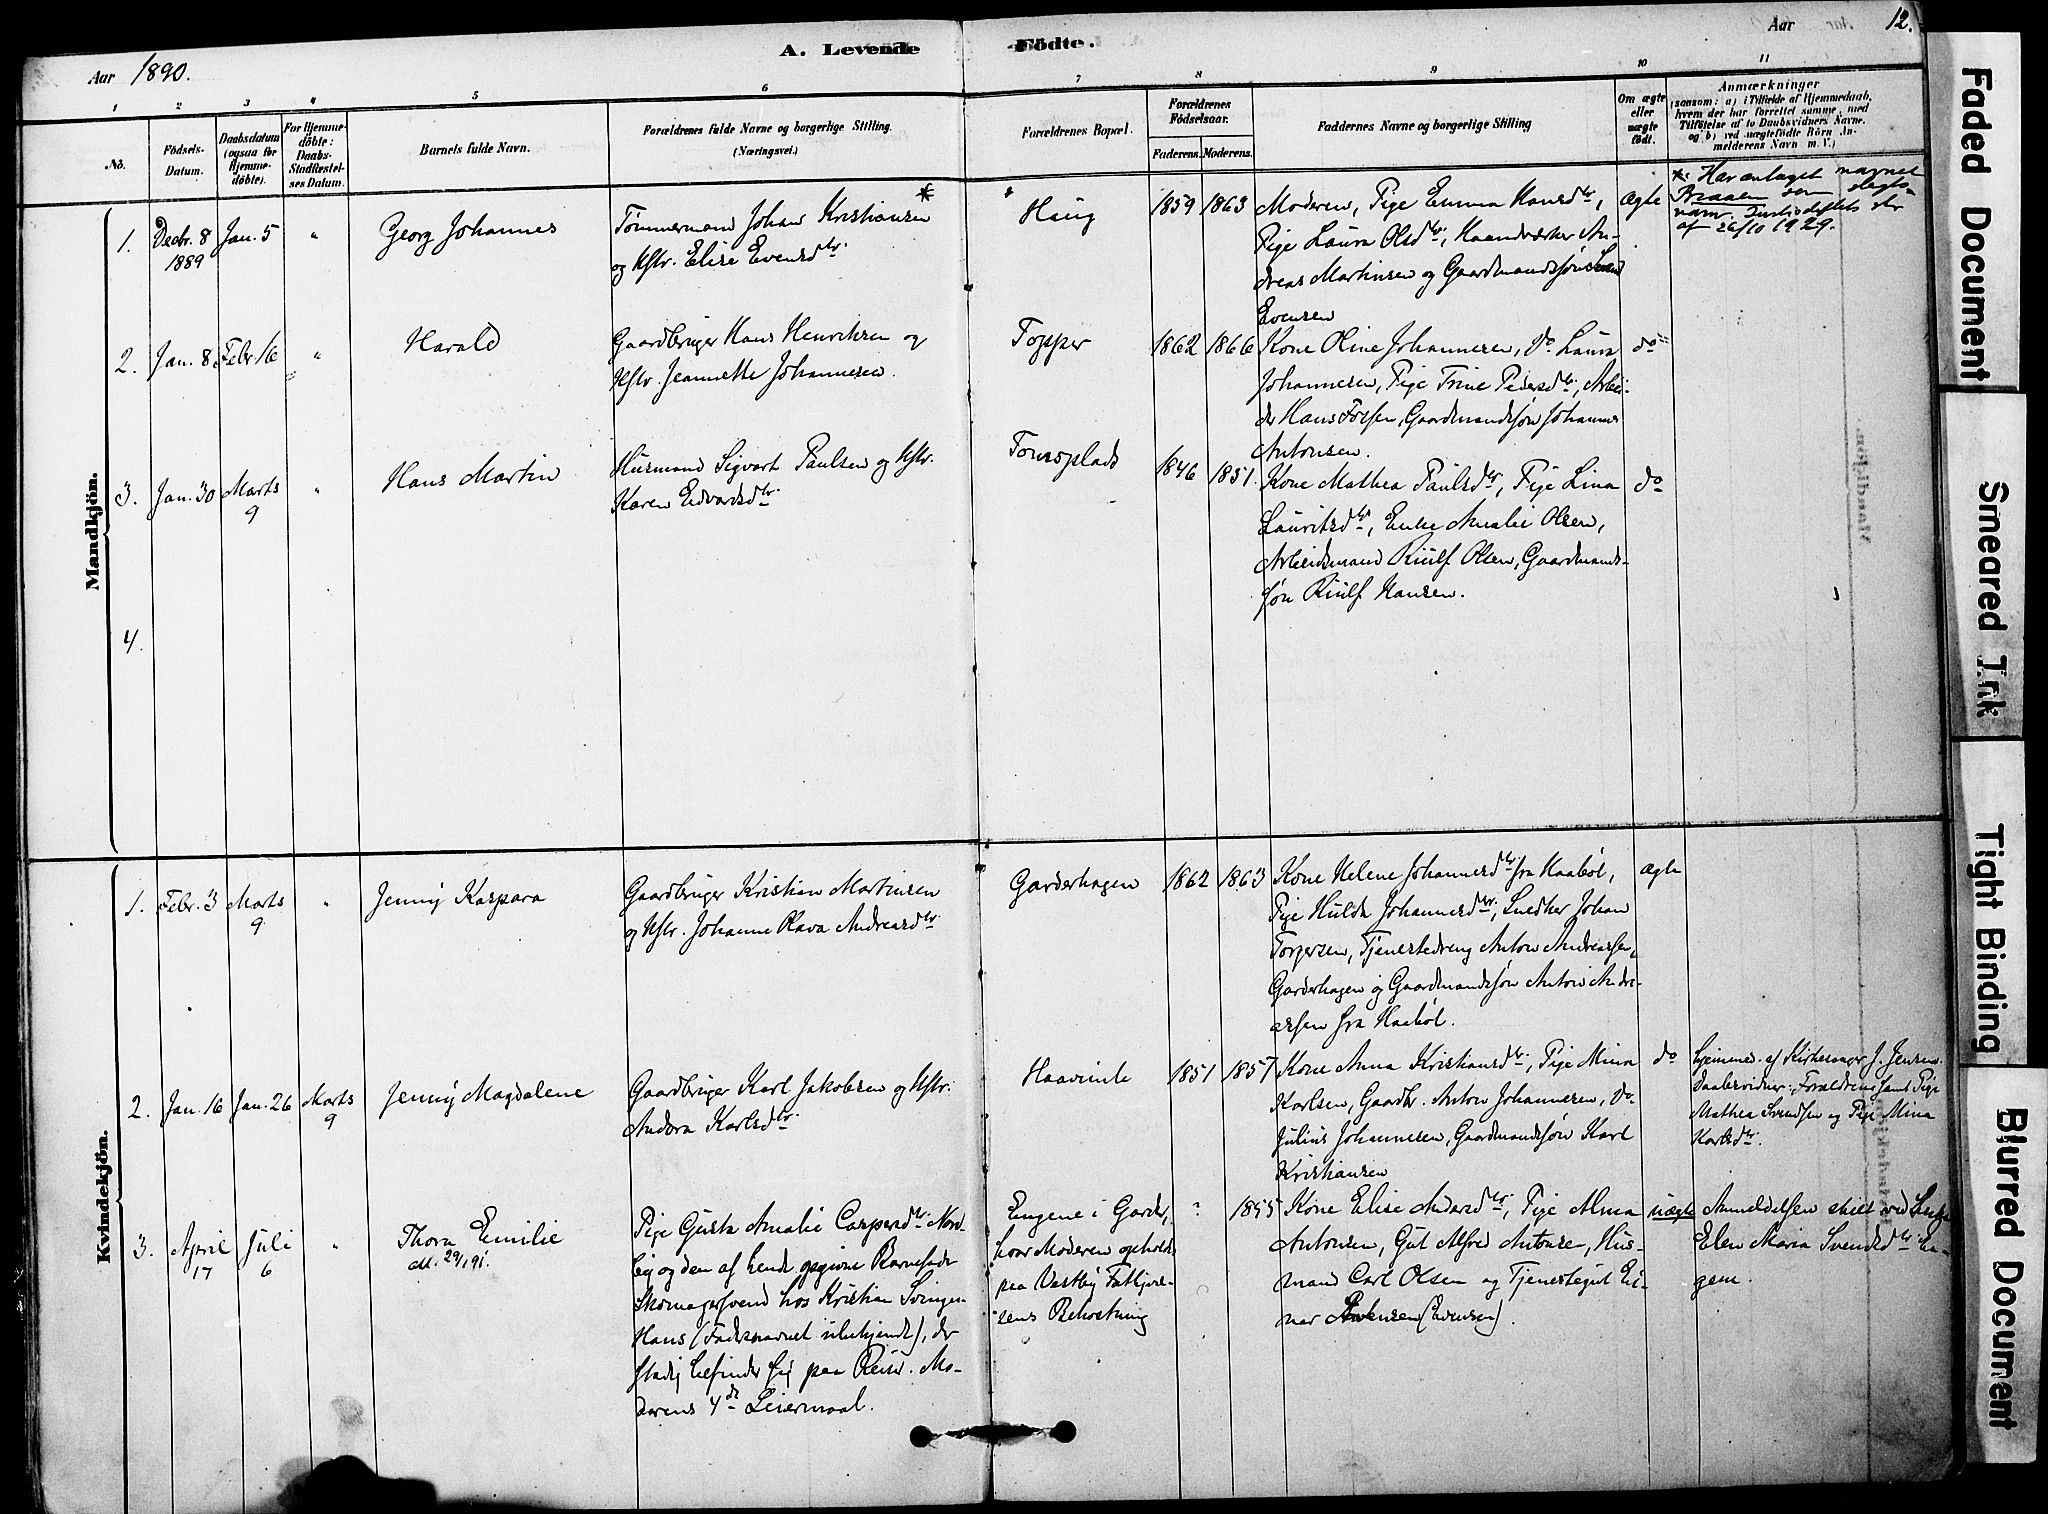 A. Levende Födte.
Aar 1890.
Aar 12.
1 2 3 4 5 6 7 8 9 10 11
No.
Födsels-Datum.
Daabsdatum (ogsaa for Hjemmedöbte).
For Hjemmedöbte: Daabs-Stadfæstelses Datum.
Barnets fulde Navn.
Forældrenes fulde Navne og borgerlige Stilling.
(Næringsvei.)
Forældrenes Bopæl.
Forældrenes Födselsaar.
Faderens. Moderens.
Faddernes Navne og borgerlige Stilling
Om ægte eller uægte födt.
Anmærkninger
(saasom: a) i Tilfælde af Hjemmedaab,
hvem der har forrettet samme, med
Tilföielse af to Daabsvidners Navne,
og b) ved uægtefödte Börn An-
melderens Navn m. V.)
Mandkjön.
1. Decbr. 8 1889
Jan. 5
"
Georg Johannes
Tømmermand Johan Kristiansen *
og Hstr. Elise Evensdtr.
Haug
1859 1863
Moderen, Pige Emma Hansdtr,
Pige Laura Olsdtr, Haandværker An-
dreas Martinsen og Gaardmandssøn
Evensen
Ægte
*: Har antaget navnet
Braaten som slegts-
navn. Justisdeptets skr
af 26/10 1929.
2. Jan. 8.
Febr 16
"
Harald
Gaardbruger Hans Henriksen og
Hstr. Jeannette Johannesen.
Topper
1862 1866
Kone Oline Johannesen, do Laura
Johannesen, Pige Trine Pedersdtr, Arbei-
der Hans Forsen, Gaardmandssøn Johannes
Antonsen.
do
3. Jan. 30
Marts 9
"
Hans Martin
Husmand Sigvart Paulsen og Hstr.
Karen Edvardsdtr.
1846 1851.
Kone Mathea Paulsdtr, Pige Lina
Lauritsdtr, Enke Amalie Olsen,
Arbeidsmand Riulf Olsen, Gaardmands-
søn Riulf Hansen.
do
4.
Kvindekjön.
1. Febr. 3
Marts 9
"
Jenny Kaspara
Gaardbruger Kristian Martinsen
og Hstr. Johanne Olava Andreasdtr
Garderhagen
1862 1863
Kone Helene Johannesdtr fra Haabøl,
Pige Hulda Johannesdtr, Snedker Johan
Torgersen, Tjenestedreng Anton Andreassen,
Garderhagen og Gaardmandssøn Anton Andre-
assen fra Haabøl.
ægte
2. Jan. 16
Jan. 26
Marts 9
Jenny Magdalene
Gaardbruger Karl Jakobsen og Hstr.
Andora Karlsdtr.
1851 1857
Kone Anna Kristiansdtr, Pige Mina
Karlsen, Gaardbr. Anton Johannesen, do
Julius Johannesen, Gaardmandssøn Karl
Kristiansen
do
hjemmed. af Kirkesanger J. Jensen.
Daabsvidner: Forældrene samt Pige
Mathea Svendsen og Pige Mina
Karlsdtr.
3. April 17
Juli 6
"
Thora Emilie
Pige Gusta Amalie Caspersdtr Nord-
by og den af hende opgivne Barnefader
Skomagersvend hos Kristian Svingen
Hans (Fadersnavnet ubekjendt), der
stadig befinder sig paa Reise. Mo-
derens 4de Leiermaal.
Engene i Garder,
hvor Moderen opholdes
paa Vestby Fattigvæ-
sens Bekostning
? 1855
Kone Elise Andersdtr, Pige Alma
Antonsen, Gut Alfred Antonsen, Hus-
mand Carl Olsen og Tjenestegut Ei-
nar (Evensen).
uægte
Anmeldelsen skeet ved
Elen Maria Svendsdtr En-
gene.
Faded Document
Smeared Ink
Tight Binding
Blurred Document